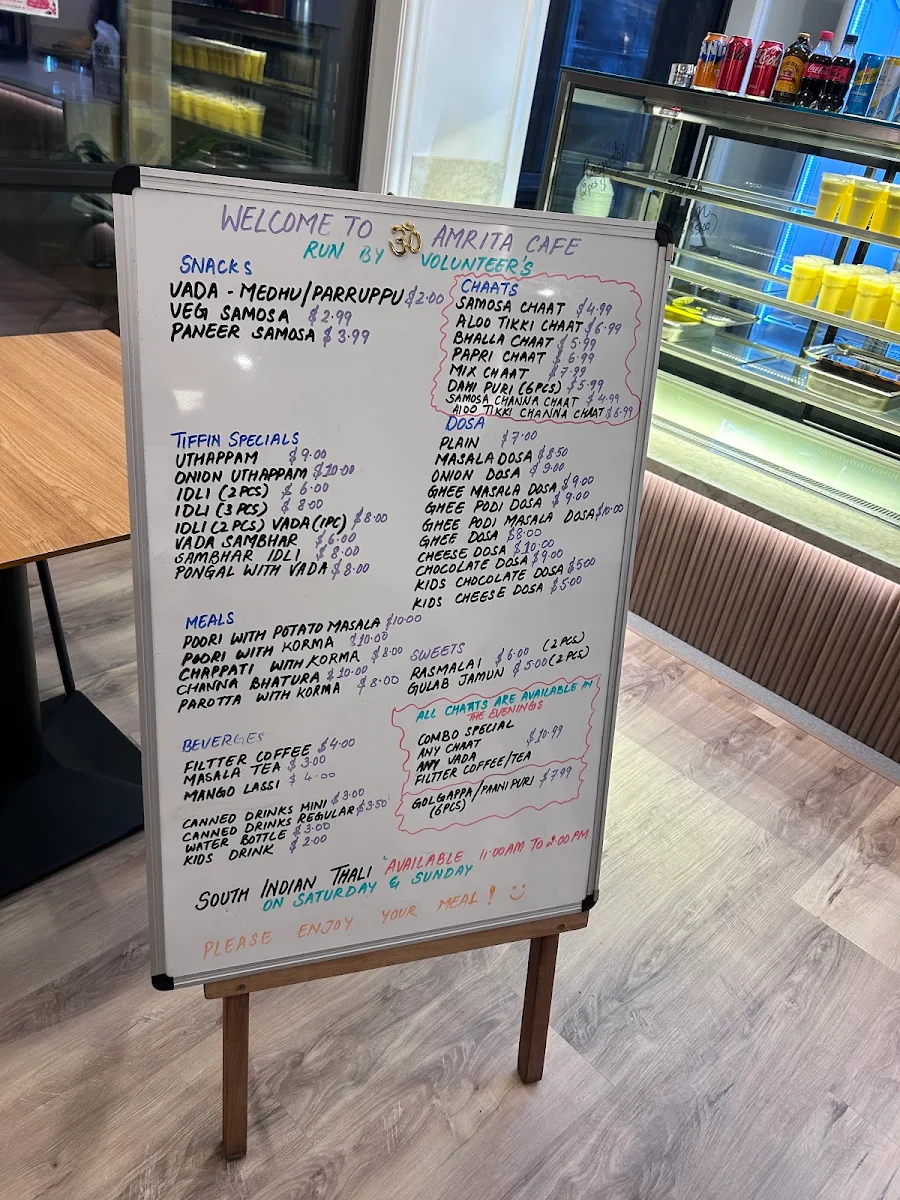 WELCOME TO ॐ AMRITA CAFE
RUN BY VOLUNTEER'S
SNACKS
VADA - MEDHU/PARRUPPU $2.00
VEG SAMOSA $2.99
PANEER SAMOSA $3.99
CHAATS
SAMOSA CHAAT $4.99
ALOO TIKKI CHAAT $6.99
BHALLA CHAAT $5.99
PAPRI CHAAT $6.99
MIX CHAAT $7.99
DAHI PURI (6PCS) $5.99
SAMOSA CHANNA CHAAT $4.99
ALOO TIKKI CHANNA CHAAT $6.99
TIFFIN SPECIALS
UTHAPPAM $9.00
ONION UTHAPPAM $10.00
IDLI (2PCS) $6.00
IDLI (3PCS) $8.00
IDLI (2PCS) VADA (1PC) $8.00
VADA SAMBHAR $6.00
SAMBHAR IDLI $8.00
PONGAL WITH VADA $8.00
DOSA
PLAIN $7.00
MASALA DOSA $8.50
ONION DOSA $9.00
GHEE MASALA DOSA $9.00
GHEE PODI DOSA $9.00
GHEE PODI MASALA DOSA $10.00
GHEE DOSA $8.00
CHEESE DOSA $10.00
CHOCOLATE DOSA $9.00
KIDS CHOCOLATE DOSA $5.00
KIDS CHEESE DOSA $5.00
MEALS
POORI WITH POTATO MASALA $10.00
POORI WITH KORMA $10.00
CHAPPATI WITH KORMA $8.00
CHANNA BHATURA $10.00
PAROTTA WITH KORMA $8.00
SWEETS
RASMALAI $6.00 (2PCS)
GULAB JAMUN $5.00 (2PCS)
ALL CHAATS ARE AVAILABLE IN
THE EVENINGS
COMBO SPECIAL
ANY CHAAT $10.99
ANY VADA
FILTTER COFFEE/TEA
GOLGAPPA/PAANI PURI $7.99
(6PCS)
BEVERGES
FILTTER COFFEE $4.00
MASALA TEA $3.00
MANGO LASSI $4.00
CANNED DRINKS MINI $3.00
CANNED DRINKS REGULAR $3.50
WATER BOTTLE $3.00
KIDS DRINK $2.00
SOUTH INDIAN THALI AVAILABLE 11:00AM TO 2:00PM
ON SATURDAY & SUNDAY
PLEASE ENJOY YOUR MEAL!